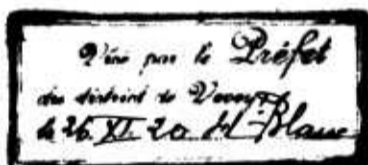 Visé par le Préfet
du district de Vevey
le 26 XI 20 H. Blanc